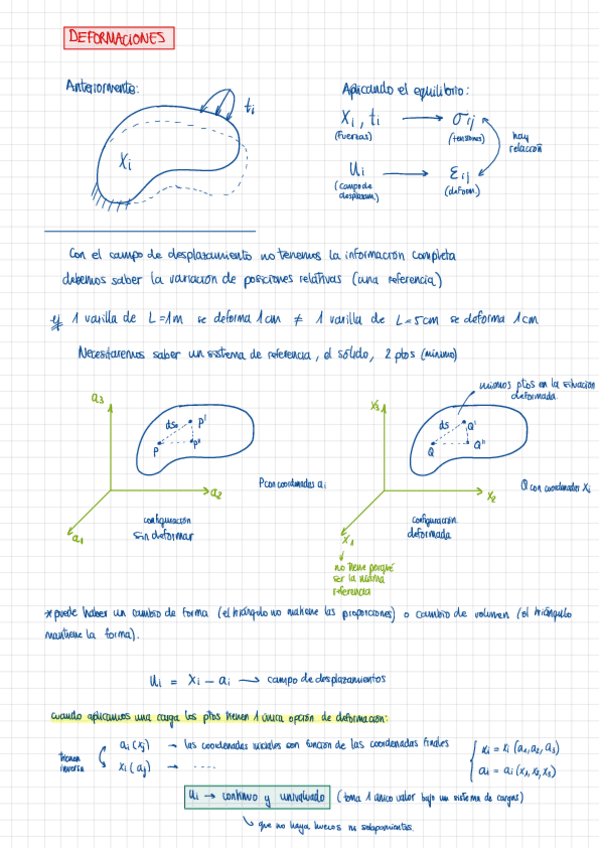 DEFORMACIONES
Anteriormente:
ti
Xi
Aplicando el equilibrio:
Xi, ti → σij
(fuerzas) (tensiones)
hay relación
ui → εij
(campo de desplazam.) (deform.)
Con el campo de desplazamiento no tenemos la información completa
debemos saber la variación de posiciones relativas (una referencia)
ej 1 varilla de L=1m se deforma 1cm ≠ 1 varilla de L=5cm se deforma 1cm
Necesitaremos saber un sistema de referencia, el sólido, 2 ptos (mínimo)
mismos ptos en la situación
deformada
a3
ds0 P'
P P''
a2
a1
P con coordenadas ai
configuración
sin deformar
x3
ds Q'
Q Q''
x2
x1
Q con coordenadas xi
configuración
deformada
no tiene porqué
ser la misma
referencia
*puede haber un cambio de forma (el triángulo no mantiene las proporciones) o cambio de volumen (el triángulo
mantiene la forma).
ui = xi - ai → campo de desplazamientos
cuando aplicamos una carga los ptos tienen 1 única opción de deformación:
tienen
inversa
ai (xj) → las coordenadas iniciales son función de las coordenadas finales
xi (aj) → .....
xi = xi (a1, a2, a3)
ai = ai (x1, x2, x3)
ui → continuo y univaluado (toma 1 único valor bajo un sistema de cargas)
que no haya huecos ni solapamientos.